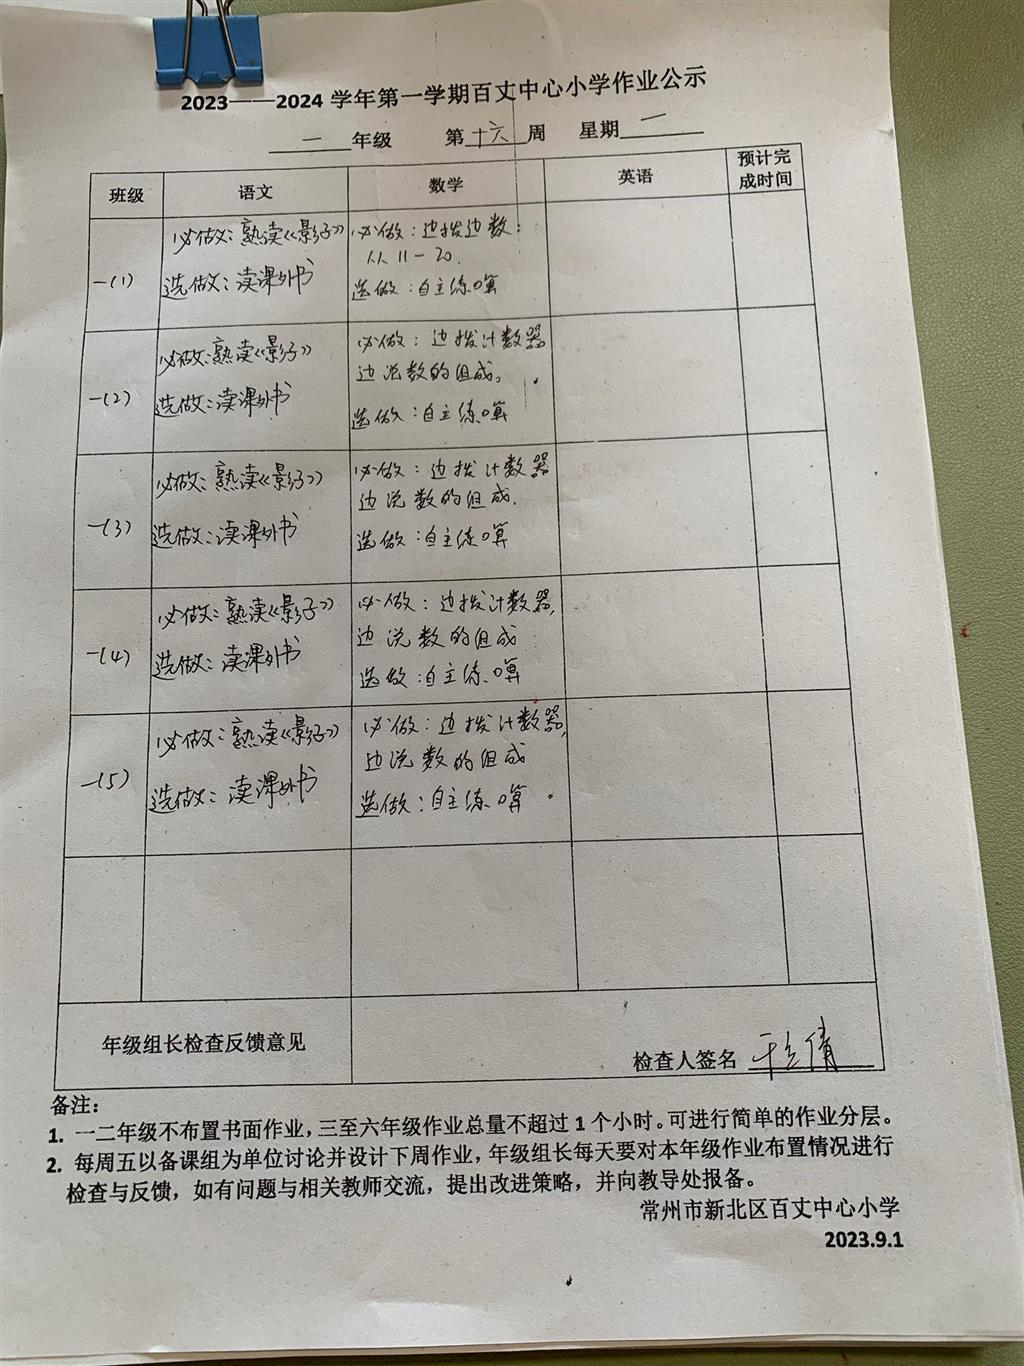 2023——2024 学年第一学期百丈中心小学作业公示
一 年级 第 十六 周 星期 一
班级 语文 数学 英语 预计完成时间
一(1)
必做：熟读《影子》
选做：读课外书
必做：边拨边数：
从11－20.
选做：自主练口算
一(2)
必做：熟读《影子》
选做：读课外书
必做：边拨计数器
边说数的组成。
选做：自主练口算
一(3)
必做：熟读《影子》
选做：读课外书
必做：边拨计数器
边说数的组成.
选做：自主练口算
一(4)
必做：熟读《影子》
选做：读课外书
必做：边拨计数器,
边说数的组成
选做：自主练口算
一(5)
必做：熟读《影子》
选做：读课外书
必做：边拨计数器,
边说数的组成
选做：自主练口算.
年级组长检查反馈意见
检查人签名
备注：
1. 一二年级不布置书面作业，三至六年级作业总量不超过 1 个小时。可进行简单的作业分层。
2. 每周五以备课组为单位讨论并设计下周作业，年级组长每天要对本年级作业布置情况进行
检查与反馈，如有问题与相关教师交流，提出改进策略，并向教导处报备。
常州市新北区百丈中心小学
2023.9.1